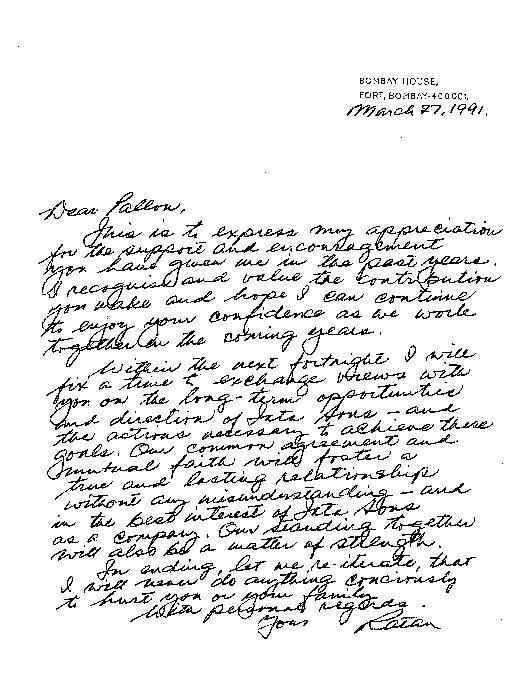 BOMBAY HOUSE,
FORT, BOMBAY-400 001.
March 27, 1991.
Dear Pallon,
This is to express my appreciation
for the support and encouragement
you have given me in the past years.
I recognise and value the contribution
you make and hope I can continue
to enjoy your confidence as we work
together in the coming years.
Within the next fortnight I will
fix a time to exchange views with
you on the long-term opportunities
and direction of Tata Sons - and
the actions necessary to achieve these
goals. Our common agreement and
mutual faith will foster a
true and lasting relationship
without any misunderstanding - and
in the best interest of Tata Sons
as a company. Our standing together
will also be a matter of strength.
In ending, let me re-iterate, that
I will never do anything conciously
to hurt you or your family.
With personal regards.
Yours
Ratan